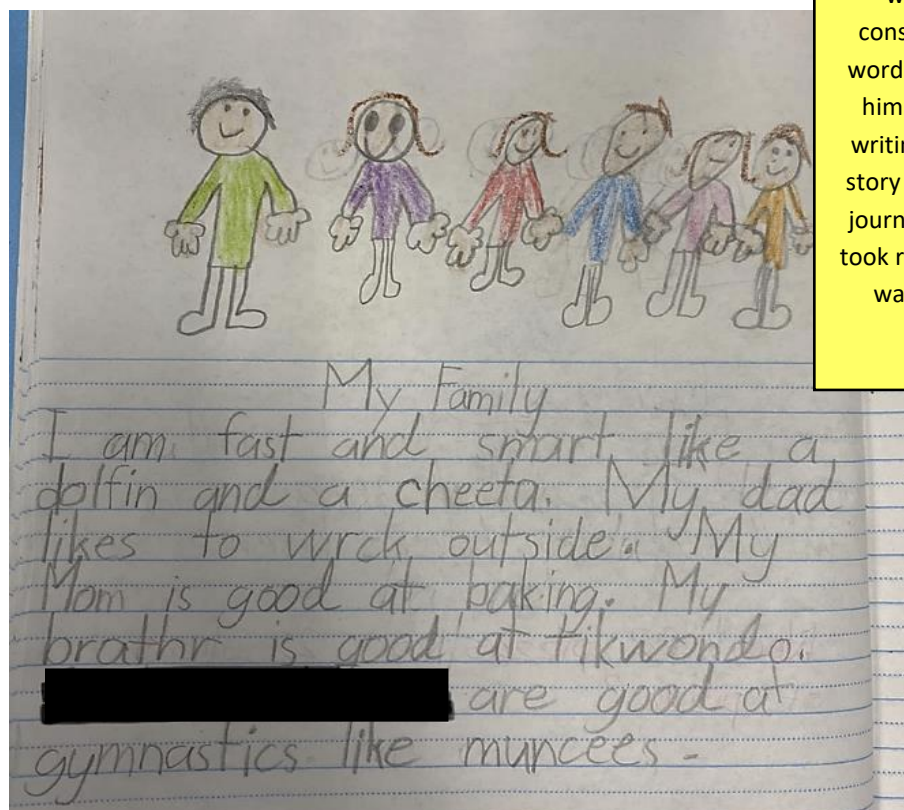 w
cons
word
him
writin
story
journ
took r
wa
My Family
I am fast and smart like a
dolfin and a cheeta. My dad
likes to wrck outside. My
Mom is good at baking. My
brathr is good at tikwondo.
are good at
gymnastics like muncees.